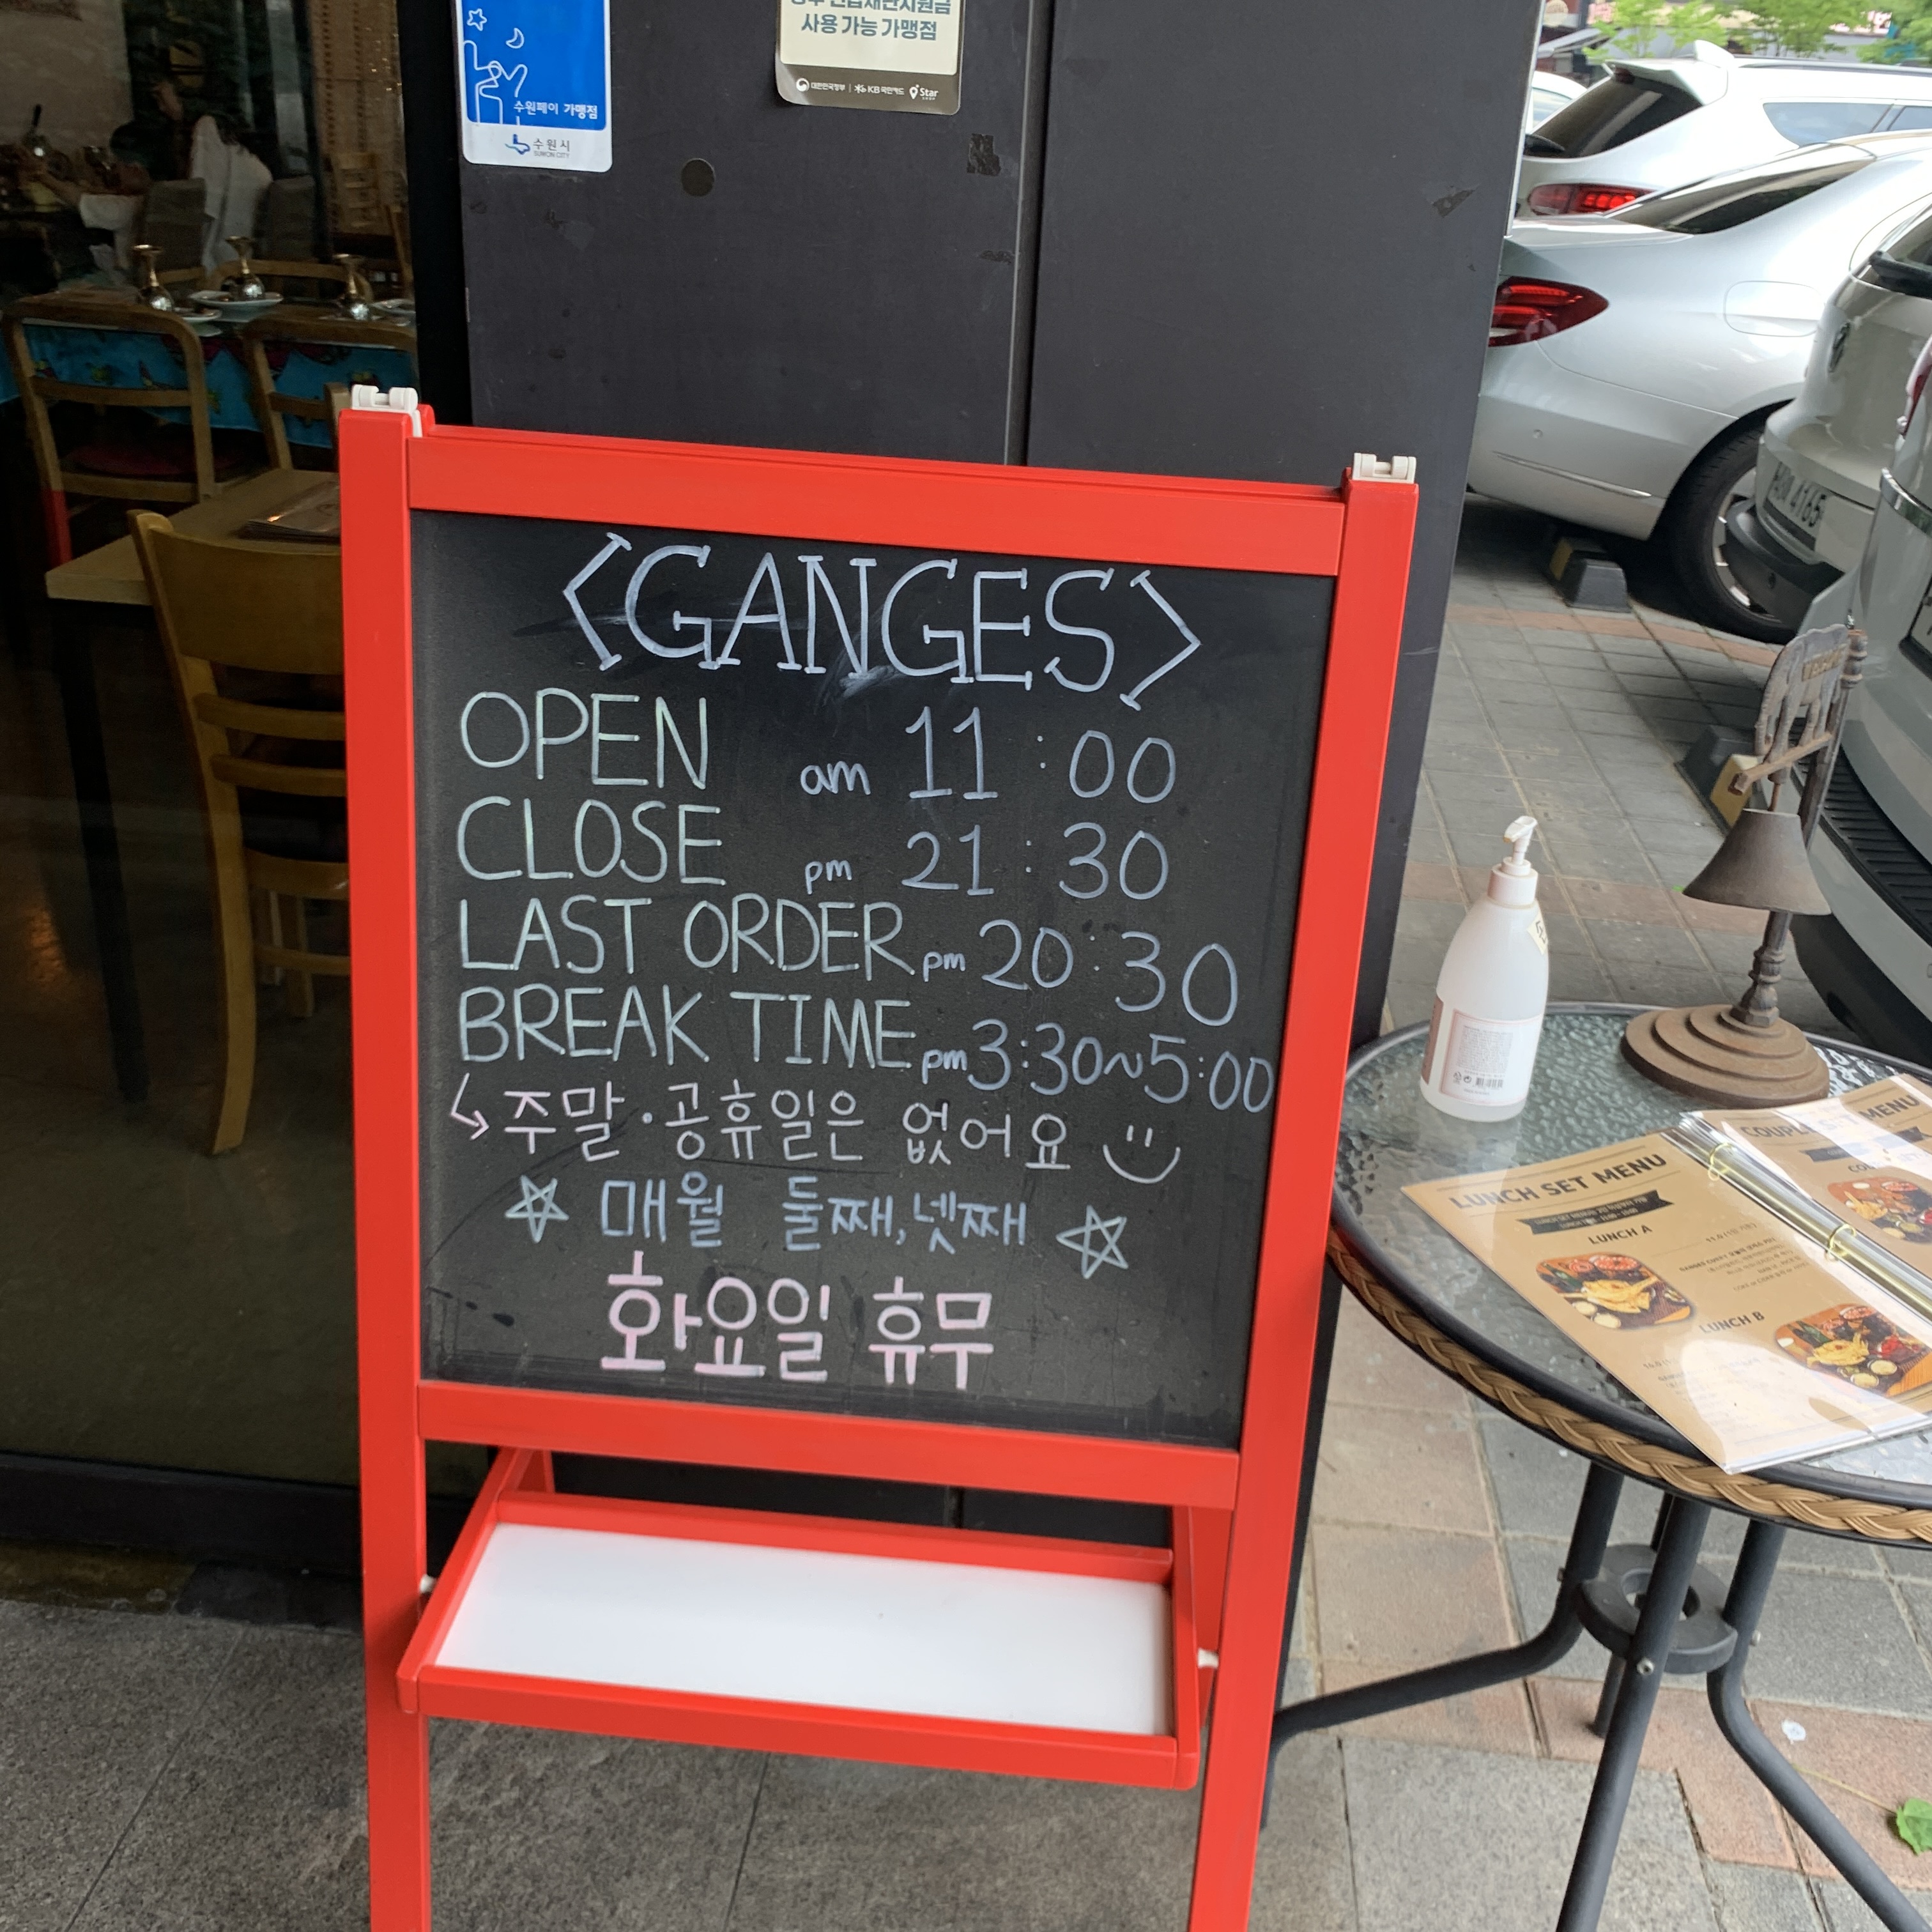 사용 가능 가맹점
대한민국정부 KB 국민카드 Star
수원페이 가맹점
수원시
SUWON CITY
<GANGES>
OPEN am 11:00
CLOSE pm 21:30
LAST ORDER pm 20:30
BREAK TIME pm 3:30~5:00
↳주말·공휴일은 없어요
☆ 매월 둘째, 넷째 ☆
화요일 휴무
4165
LUNCH SET MENU
LUNCH A
LUNCH B
MENU